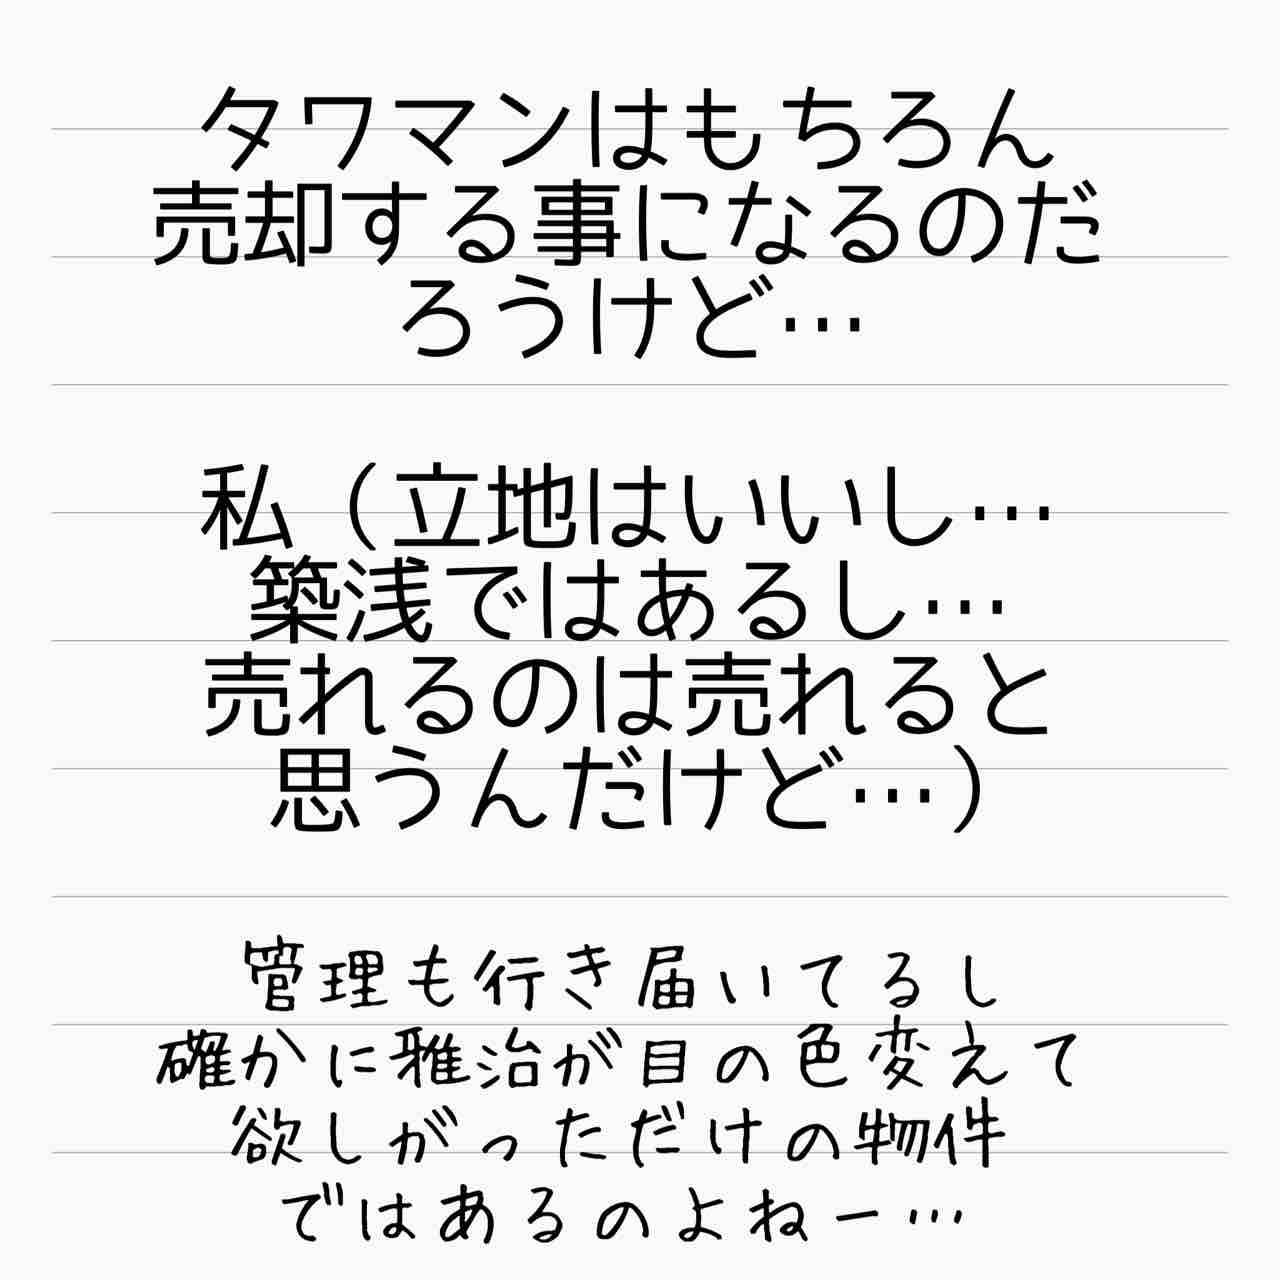 タワマンはもちろん
売却する事になるのだ
ろうけど…
私（立地はいいし…
築浅ではあるし…
売れるのは売れると
思うんだけど…）
管理も行き届いてるし
確かに雅治が目の色変えて
欲しがっただけの物件
ではあるのよねー…